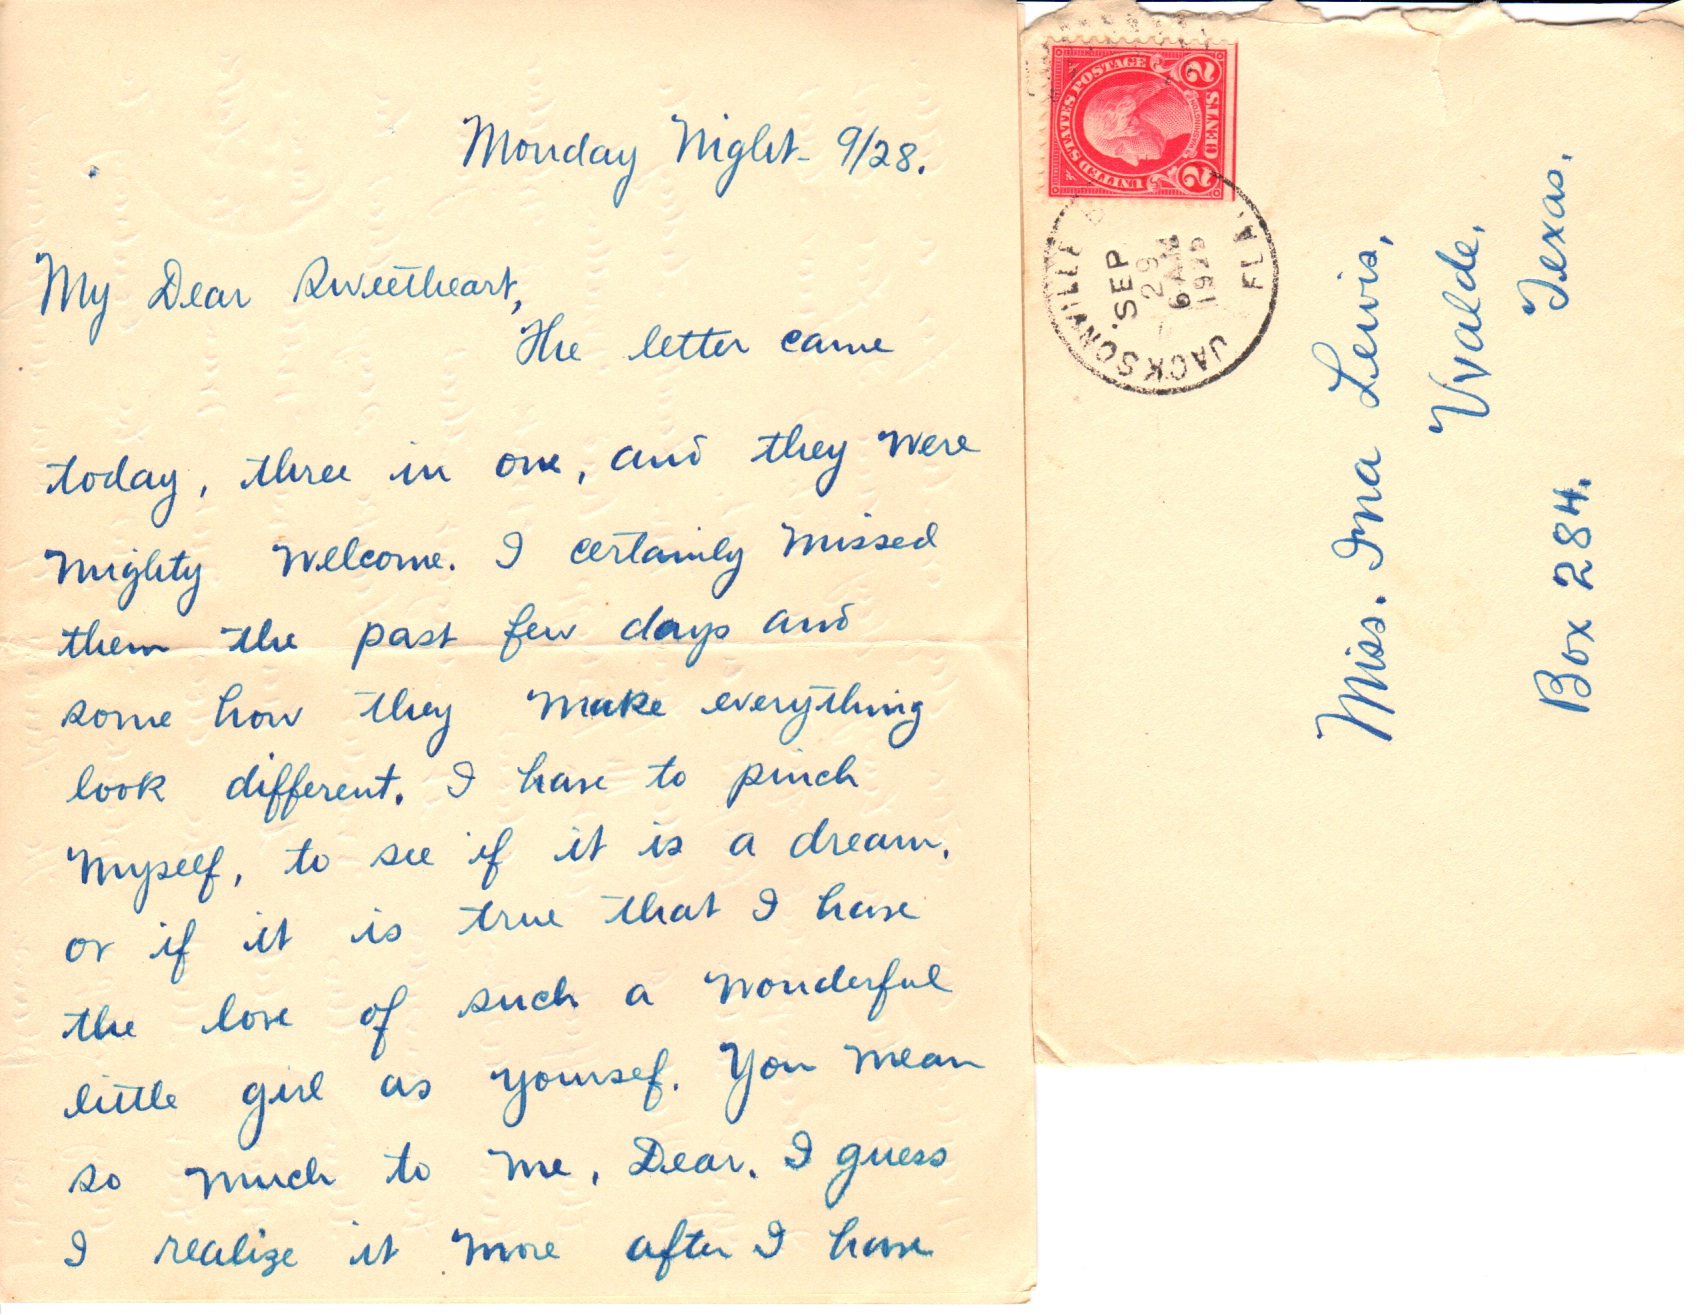 Monday Night - 9/28.
My Dear Sweetheart,
The letter came
today, three in one, and they were
mighty welcome. I certainly missed
them the past few days and
some how they make everything
look different. I have to pinch
myself, to see if it is a dream,
or if it is true that I have
the love of such a wonderful
little girl as yoursef. You mean
so much to me, Dear. I guess
I realize it more after I have
UNITED STATES POSTAGE
WASHINGTON
2 CENTS 2
JACKSONVILLE
FLA
SEP
29
6 AM
1925
Miss. Ina Lewis,
Uvalde,
Box 284. Texas.